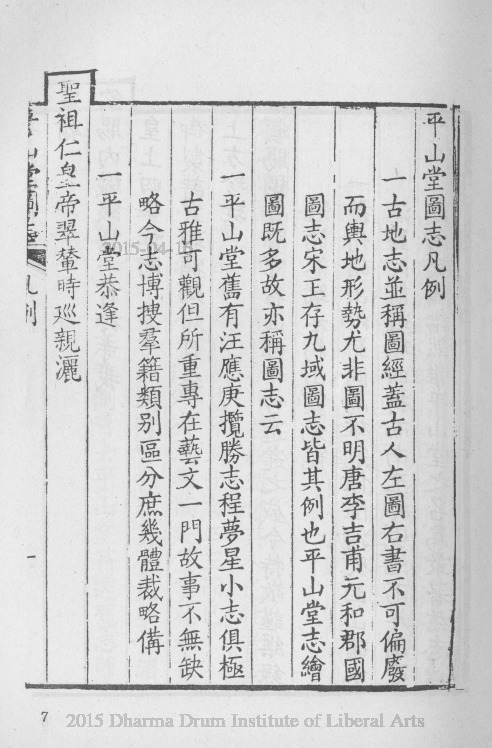 平山堂圖志凡例
一古地志並稱圖經蓋古人左圖右書不可偏廢
而輿地形勢尤非圖不明唐李吉甫元和郡國
圖志宋王存九域圖志皆其例也平山堂志繪
圖既多故亦稱圖志云
一平山堂舊有汪應庚攬勝志程夢星小志俱極
古雅可觀但所重專在藝文一門故事不無缺
略今志博搜羣籍類別區分庶幾體裁略備
一平山堂恭逢
聖祖仁皇帝翠輦時巡親灑
平山堂圖志 凡例 一
2015-04-15
7
2015 Dharma Drum Institute of Liberal Arts